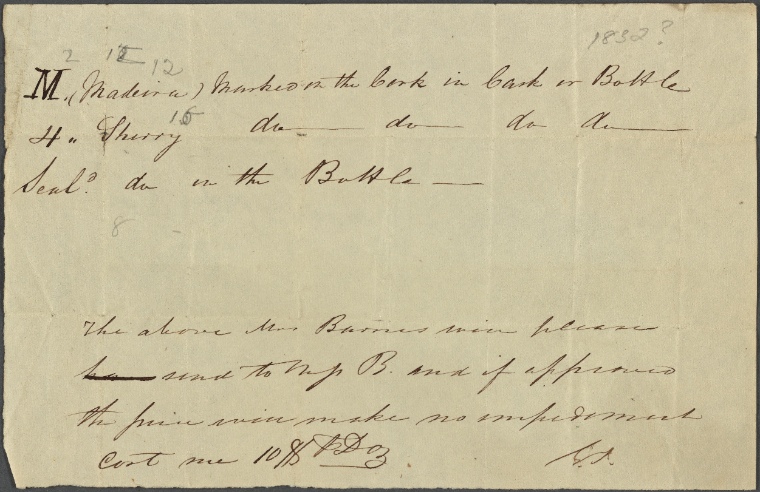 1832?
2 15 12
M. (Madeira) Marked on the Cork in Cask or Bottle
4 " Sherry 15 do — do — do do —
Seal.d do in the Bottle —
8 -
The above Mr Barnes will please
send to B. and if approved
the price will make no impediment
cost me 10 Doz